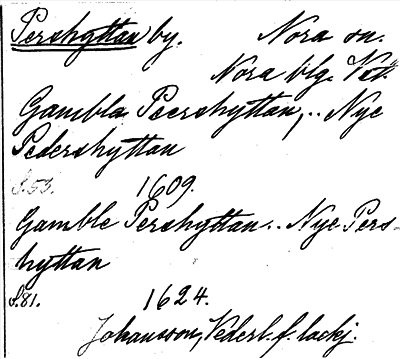 Pershyttan by. Nora sn.
Nora blg. Vstm.
Gambla Peershyttan, .. Nye
Pedershyttan
S. 53. 1609.
Gamble Pershyttan .. Nye Pers-
hyttan
S. 81. 1624.
Johansson, Vederl. f. lackj.